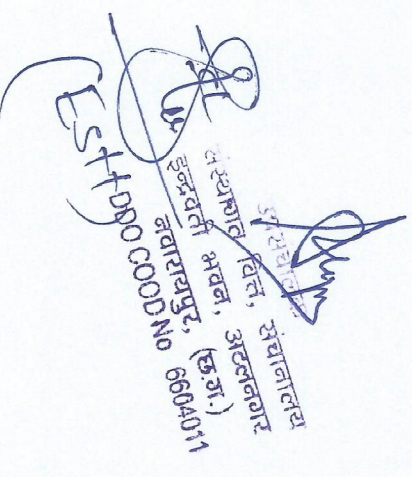 उपसंचालक
संस्थागत वित्त, संचालनालय
इन्द्रवती भवन, अटलनगर
नवारायपुर, (छ.ग.)
DDO COOD No 6604011
(Estt